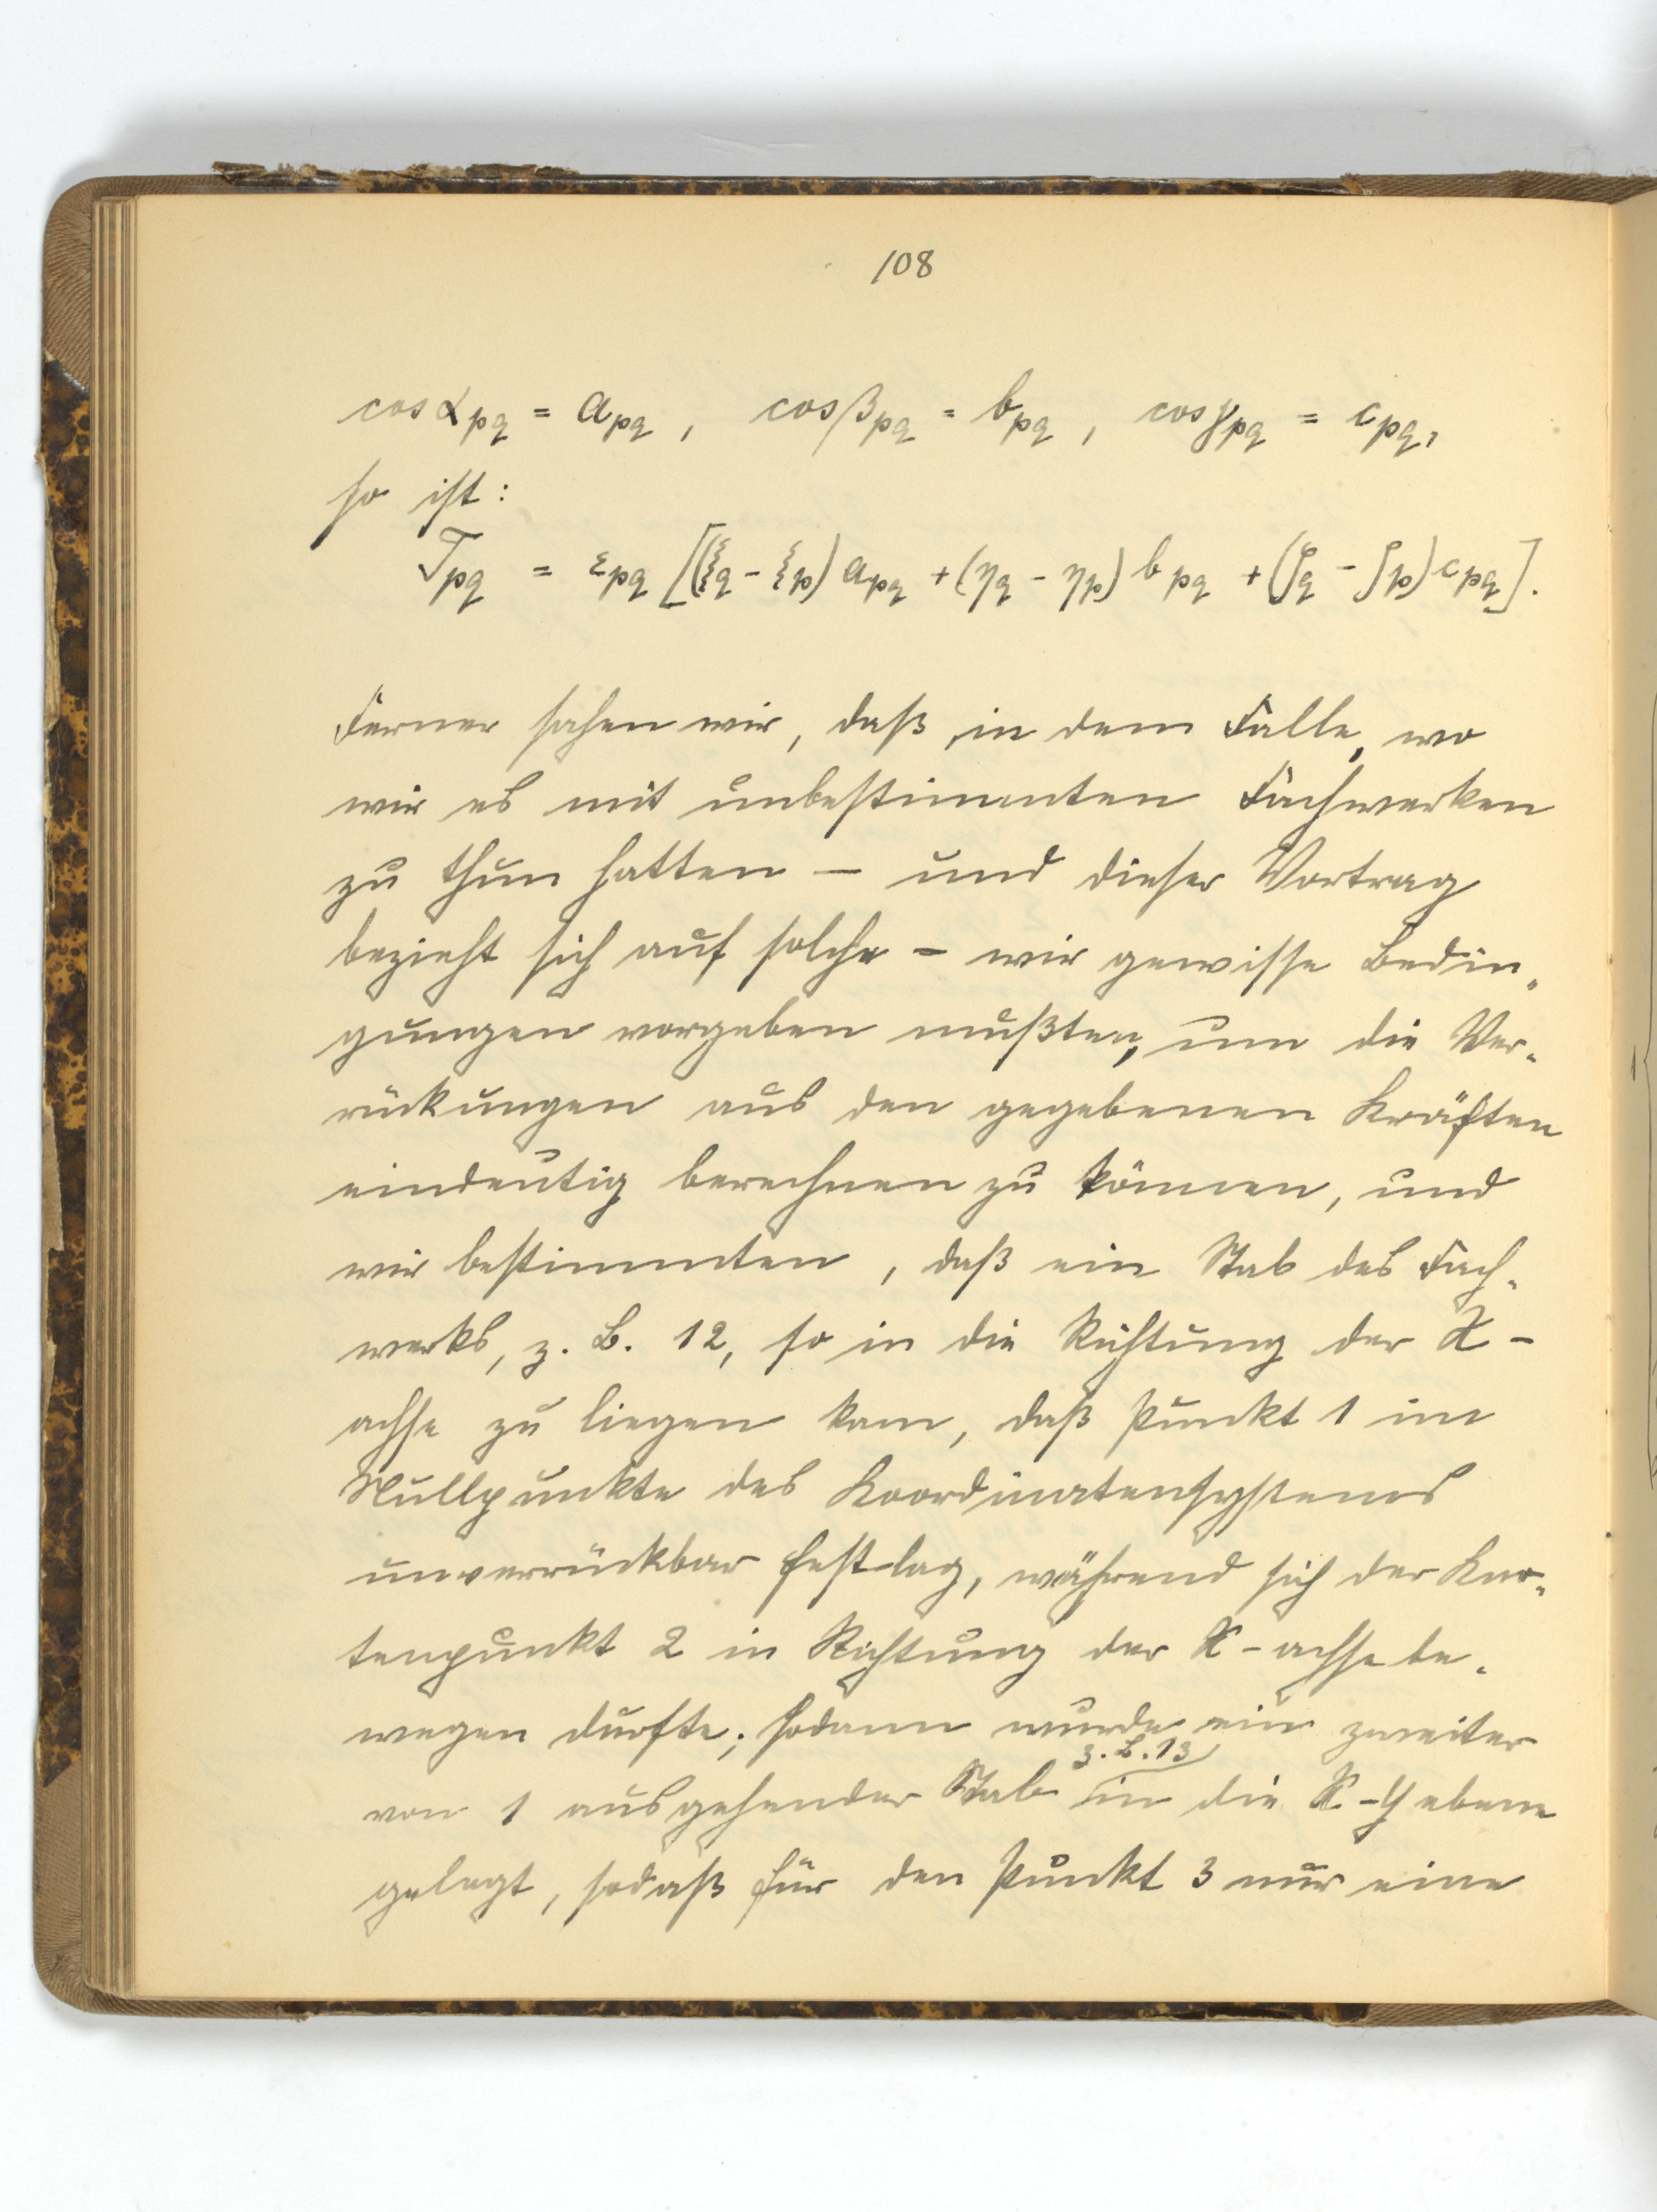 108
cos α_pq = a_pq , cos β_pq = b_pq , cos γ_pq = c_pq,
so ist:
T_pq = ε_pq [(ξ_q - ξ_p) a_pq + (η_q - η_p) b_pq + (ζ_q - ζ_p) c_pq].
Ferner sahen wir, daß, in dem Falle, wo
wir es mit unbestimmten Fachwerken
zu thun hatten – und dieser Vortrag
bezieht sich auf solche – wir gewisse Bedin-
gungen vorgeben mußten, um die Ver-
rückungen aus den gegebenen Kräften
eindeutig berechnen zu können, und
wir bestimmten, daß ein Stab des Fach-
werks, z. B. 12, so in die Richtung der X-
achse zu liegen kam, daß Punkt 1 im
Nullpunkte des Koordinatensystems
unverrückbar festlag, während sich der Kno-
tenpunkt 2 in Richtung der X-achse be-
wegen durfte; sodann wurde ein zweiter
z. B. 13
von 1 ausgehender Stab in die X-Y ebene
gelegt, sodaß für den Punkt 3 nur eine